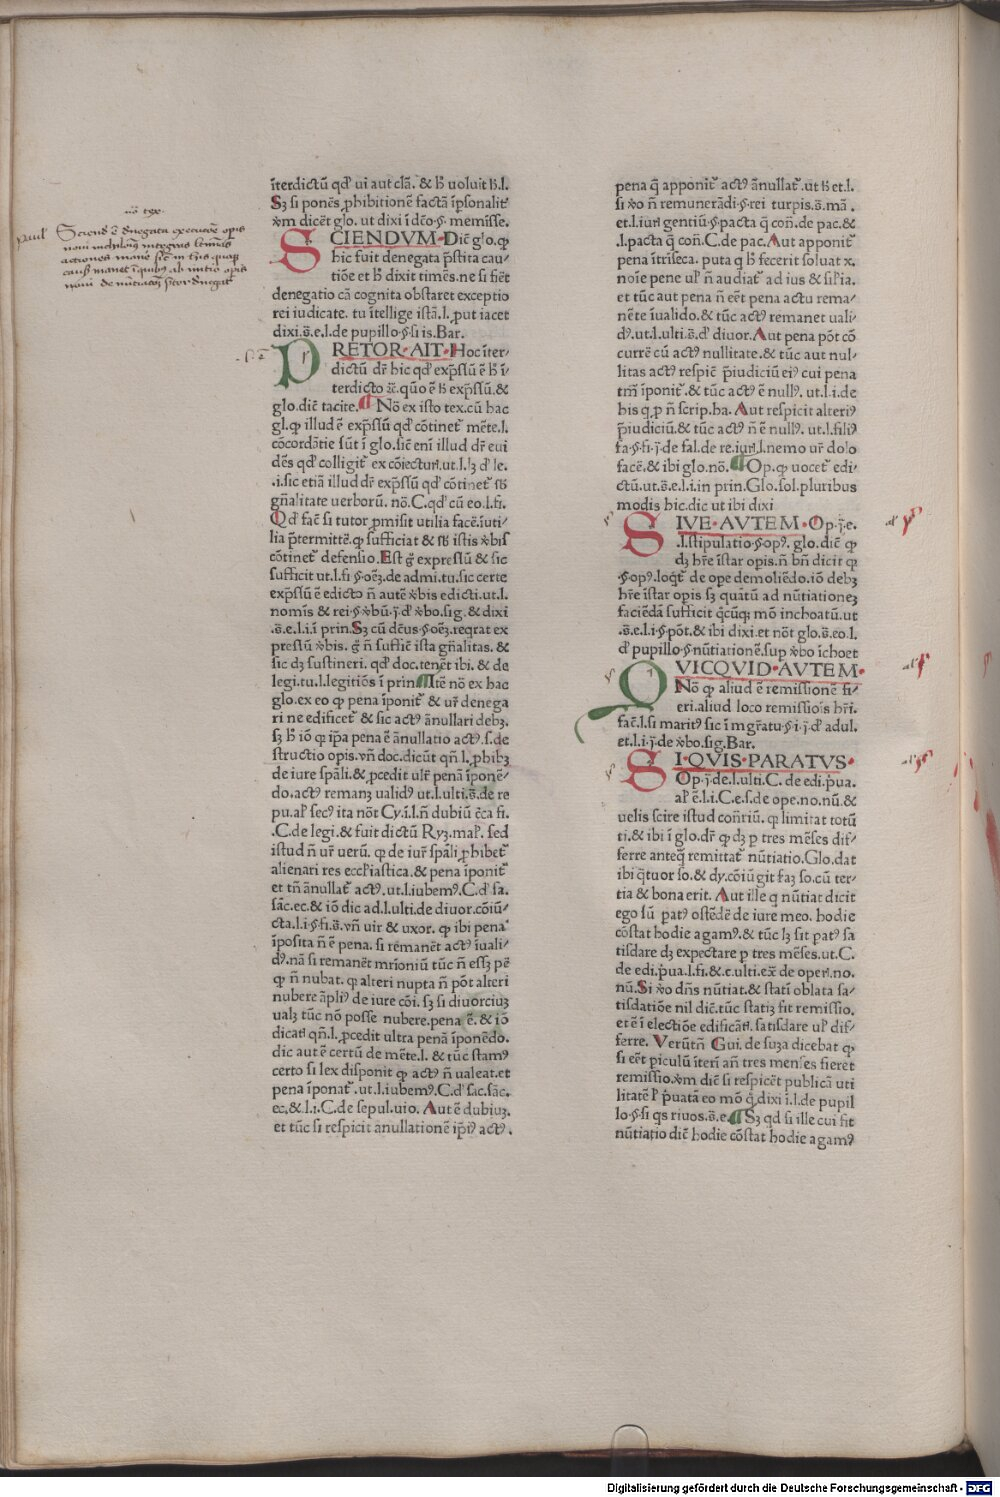 ĩterdictũ qđ ui aut clã. & ħ uoluit ħ.l.
Sꝫ si ponẽs ꝓhibitionẽ factã ĩpsonalit̃
ꝟm dicẽt glo. ut dixi ĩ dc̃o.§. memisse.
SCIENDVM. Dic̃ glo. ꝙ
hic fuit denegata p̃stita cau⸗
tiõe et ħ dixit timẽs. ne si fiẽt
denegatio cã cognita obstaret exceptio
rei iudicate. tu ĩtellige istã.l. ꝓut iacet
dixi.s̃.e.l.de pupillo.§.si is. Bar.
PRETOR. AIT. Hoc ĩter⸗
dictũ dr̃ hic qđ exp̃ssũ ẽ ħ ĩ⸗
terdicto ⁊c̃. quõ ẽ ħ exp̃ssũ. &
glo. dic̃ tacite. ¶ Nõ ex isto tex. cũ hac
gl. ꝙ illud ẽ exp̃ssũ qđ cõtinet̃ mẽte.l.
cõcordãtie sũt ĩ glo. sic̃ eni illud dr̃ eui
dẽs qđ colligit̃ ex cõiectur. ut.l. lꝫ đ le.
.i. sic etiã illud dr̃ exp̃ssũ qđ cõtinet̃ sƀ
gñalitate uerborũ. nõ. C. qđ cũ eo.l.fi.
Qđ fac̃ si tutor ꝓmisit utilia facẽ. iuti⸗
lia p̃termittẽ. ꝙ sufficiat & sƀ istis ꝟbis
cõtinet̃ defensio. Est g̃ expressũ & sic
sufficit ut.l.fi.§.oẽꝫ. de admi. tu. sic certe
exp̃ssũ ẽ edicto ñ autẽ ꝟbis edicti. ut.l.
nomĩs & rei.§.ꝟbũ. j̃. đ ꝟbo. sig. & dixi
.s̃.e.l.i.ĩ prin. Sꝫ cũ dc̃us.§.oẽꝫ. reqrat ex
pressũ ꝟbis. g̃ ñ suffic̃ ista gñalitas. &
sic dꝫ sustineri. qđ doc. tenẽt ibi. & de
legi. tu.l.legitiõs ĩ prin. ¶ Itẽ nõ ex hac
glo. ex eo ꝙ pena ĩponit̃ & ur̃ denega
ri ne edificet̃ & sic actꝰ ãnullari debꝫ.
sꝫ ħ iõ ꝙ ip̃a pena ẽ ãnullatio actꝰ. s. de
structio opis. vñ doc. dicũt qñ.l. ꝓhibꝫ
de iure spãli. & ꝓcedit ult̃ penã ĩponẽ⸗
do. actꝰ remanꝫ ualidꝰ ut.l.ulti.s̃. de re
pu. al̃ secꝰ ita nõt Cy. ĩ.l. ñ dubiũ ẽca fi.
.C. de legi. & fuit dictũ Ryꝫ. mar̃. sed
istud ñ ur̃ uerũ. ꝙ de iur̃ spãli ꝓhibet̃
alienari res eccl̃iastica. & pena ĩponit̃
et tñ ãnullat̃ actꝰ. ut.l.iubemꝰ. C. đ sa.
sãc. ec. & iõ dic ad.l.ulti. de diuor. cõiũ⸗
cta.l.i.§.fi.s̃. vñ uir & uxor. ꝙ ibi pena
ĩposita ñ ẽ pena. si remanẽt actꝰ ĩuali⸗
dꝰ. nã si remanẽt mr̃ioniũ tũc ñ essꝫ pẽ
ꝙ ñ nubat. ꝙ alteri nupta ñ põt alteri
nubere ãpliꝰ de iure cõi. sꝫ si diuorciuꝫ
ualꝫ tũc nõ posse nubere. pena ẽ. & iõ
dicati qñ.l. ꝓcedit ultra penã ĩponẽdo.
dic aut ẽ certũ de mẽte.l. & tũc stamꝰ
certo si lex disponit ꝙ actꝰ ñ ualeat. et
pena ĩponat̃. ut.l.iubemꝰ. C. đ sac. sãc.
ec. & .l.i.C. de sepul. uio. Aut ẽ dubiuꝫ.
et tũc si respicit anullationẽ ip̃iꝰ actꝰ.
pena q̃ apponit̃ actꝰ ãnullat̃. ut ħ et.l.
si ꝟo ñ remunerãdi.§.rei turpis. s̃. mã.
et.l.iuri gentiũ.§.pacta q̃ con̄. de pac. &
.l.pacta q̃ con̄. C. de pac. Aut apponit̃
pena ĩtrĩseca. puta q̃ ħ fecerit soluat x.
noĩe pene ul̃ ñ audiat̃ ad ius & sil̃ia.
et tũc aut pena ñ eẽt pena actu rema⸗
nẽte ĩualido. & tũc actꝰ remanet uali⸗
dꝰ. ut.l.ulti s̃. đ diuor. Aut pena põt cõ
currẽ cũ actꝰ nullitate. & tũc aut nul⸗
litas actꝰ respic̃ p̃iudiciũ eiꝰ cui pena
tm̃ ĩponit̃. & tũc actꝰ ẽ nullꝰ. ut.l.i. de
his q. ꝓ ñ scrip. ha. Aut respicit alteriꝰ
p̃iudiciũ. & tũc actꝰ ñ ẽ nullꝰ. ut.l.filiꝰ
fa.§.fi.j̃. de fal. de re. iur.l.nemo ur̃ dolo
facẽ. & ibi glo. nõ. ¶ Op. ꝙ uocet̃ edi⸗
ctũ. ut.s̃.e.l.i. in prin. Glo. sol. pluribus
modis hic. dic ut ibi dixi
SIVE. AVTEM. Op. j̃. e.
.l.stipulatio.§.opꝰ. glo. dic̃ ꝙ
dꝫ hr̃e ĩstar opis. ñ bñ dicit ꝙ
.§.opꝰ. loq̃t̃ de ope demoliẽdo. iõ debꝫ
hr̃e ĩstar opis sꝫ quãtũ ad nũtiationeꝫ
faciẽdã sufficit q̃cũqꝫ mõ inchoatũ. ut
.s̃.e.l.i.§.põt. & ibi dixi. et nõt glo. s̃. eo.l.
đ pupillo.§.nũtiationẽ. sup ꝟbo ĩchoet
QVICQVID. AVTEM.
Nõ ꝙ aliud ẽ remissionẽ fi⸗
eri. aliud loco remissiois hr̃i.
fac̃.l.si maritꝰ sic ĩ mgr̃atu.§.i.j̃. đ adul.
et.l.i.j̃. de ꝟbo. sig. Bar.
SI. QVIS. PARATVS.
Op. j̃. de.l.ulti. C. de edi. p̃ua.
al̃ ẽ.l.i. C. e. s. de ope. no. nũ. &
uelis scire istud con̄riũ. ꝙ limitat totũ
ti. & ibi ĩ glo. dr̃ ꝙ dꝫ p tres mẽses dif⸗
ferre anteq̃ remittat̃ nũtiatio. Glo. dat
ibi q̃tuor so. & dy. cõiũgit faꝫ so. cũ ter⸗
tia & bona erit. Aut ille q nũtiat dicit
ego sũ patꝰ ostẽdẽ de iure meo. hodie
cõstat hodie agamꝰ. & tũc lꝫ sit patꝰ sa
tisdare dꝫ expectare p tres mẽses. ut. C.
de edi. p̃ua.l.fi. & c. ulti. ex̃. de operi. no.
nũ. Si ꝟo dñs nũtiat. & statĩ oblata sa⸗
tisdatiõe nil dic̃. tũc statiꝫ fit remissio.
et ẽ ĩ electiõe edificãti. satisdare ul̃ dif⸗
ferre. Verũtñ Gui. de suza dicebat ꝙ
si eẽt piculũ ĩteri añ tres menses fieret
remissio. ꝟm dic̃ si respicẽt publicã uti
litatẽ l̃ p̃uatã eo mõ q̃ dixi ĩ.l. de pupil
lo.§.si qs riuos. s̃. e. ¶ Sꝫ qđ si ille cui fit
nũtiatio dic̃ hodie cõstat hodie agamꝰ
Digitalisierung gefördert durch die Deutsche Forschungsgemeinschaft - DFG